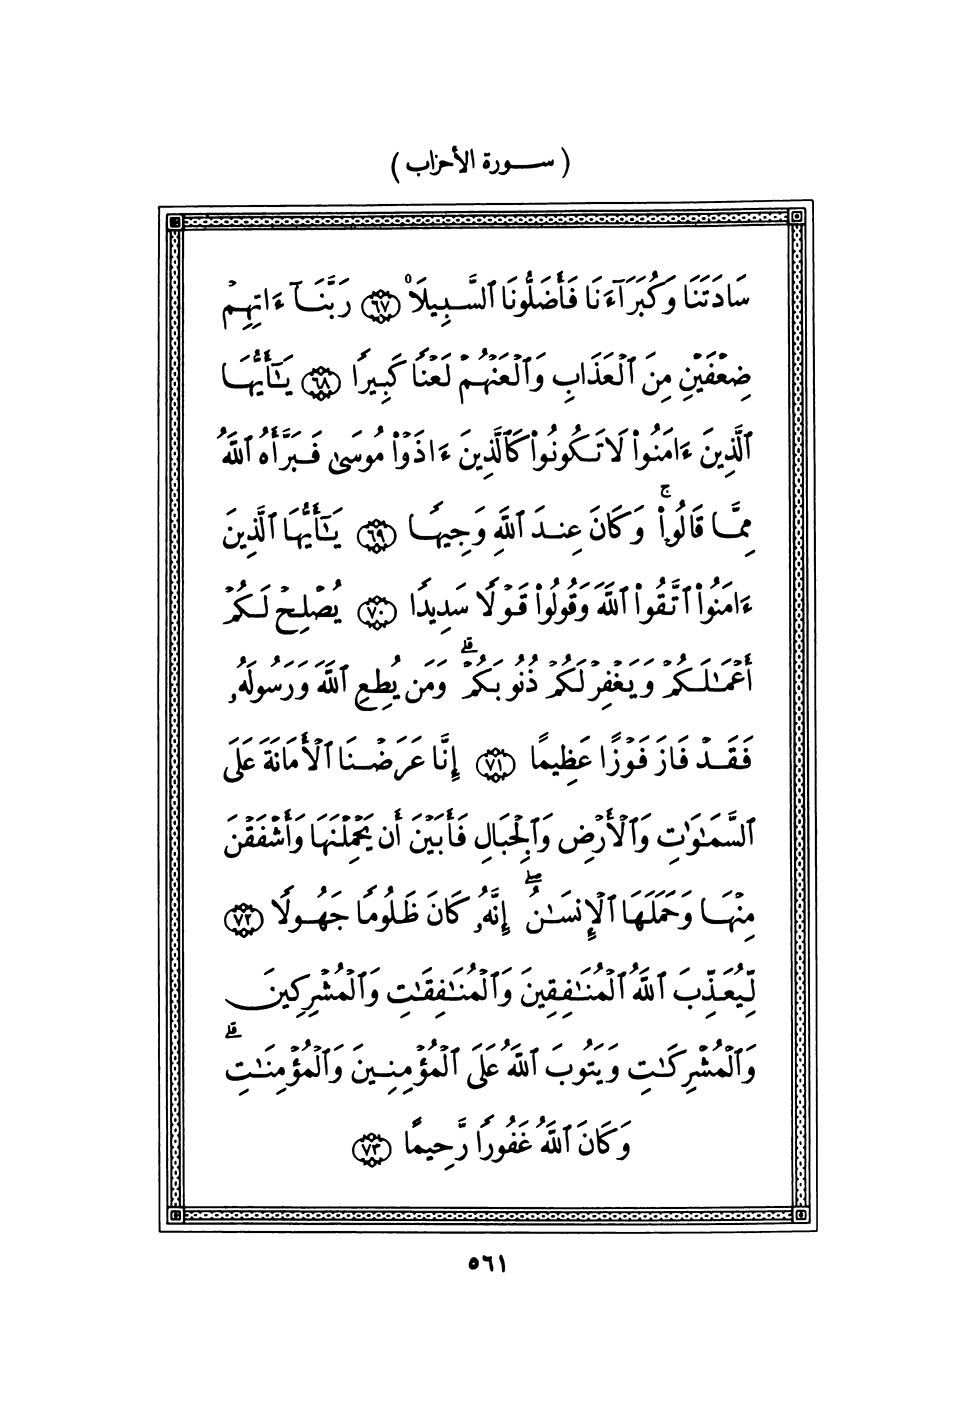 ( ســورة الأحزاب )
سَادَتَنَا وَكُبَرَآءَنَا فَأَضَلُّونَا ٱلسَّبِيلَا۠ ﴿٦٧﴾ رَبَّنَآ ءَاتِهِمْ
ضِعْفَيْنِ مِنَ ٱلْعَذَابِ وَٱلْعَنْهُمْ لَعْنًا كَبِيرًا ﴿٦٨﴾ يَـٰٓأَيُّهَا
ٱلَّذِينَ ءَامَنُوا۟ لَا تَكُونُوا۟ كَٱلَّذِينَ ءَاذَوْا۟ مُوسَىٰ فَبَرَّأَهُ ٱللَّهُ
مِمَّا قَالُوا۟ ۚ وَكَانَ عِندَ ٱللَّهِ وَجِيهًا ﴿٦٩﴾ يَـٰٓأَيُّهَا ٱلَّذِينَ
ءَامَنُوا۟ ٱتَّقُوا۟ ٱللَّهَ وَقُولُوا۟ قَوْلًا سَدِيدًا ﴿٧٠﴾ يُصْلِحْ لَكُمْ
أَعْمَـٰلَكُمْ وَيَغْفِرْ لَكُمْ ذُنُوبَكُمْ ۗ وَمَن يُطِعِ ٱللَّهَ وَرَسُولَهُۥ
فَقَدْ فَازَ فَوْزًا عَظِيمًا ﴿٧١﴾ إِنَّا عَرَضْنَا ٱلْأَمَانَةَ عَلَى
ٱلسَّمَـٰوَٰتِ وَٱلْأَرْضِ وَٱلْجِبَالِ فَأَبَيْنَ أَن يَحْمِلْنَهَا وَأَشْفَقْنَ
مِنْهَا وَحَمَلَهَا ٱلْإِنسَـٰنُ ۖ إِنَّهُۥ كَانَ ظَلُومًا جَهُولًا ﴿٧٢﴾
لِّيُعَذِّبَ ٱللَّهُ ٱلْمُنَـٰفِقِينَ وَٱلْمُنَـٰفِقَـٰتِ وَٱلْمُشْرِكِينَ
وَٱلْمُشْرِكَـٰتِ وَيَتُوبَ ٱللَّهُ عَلَى ٱلْمُؤْمِنِينَ وَٱلْمُؤْمِنَـٰتِ ۗ
وَكَانَ ٱللَّهُ غَفُورًا رَّحِيمًا ﴿٧٣﴾
٥٦١